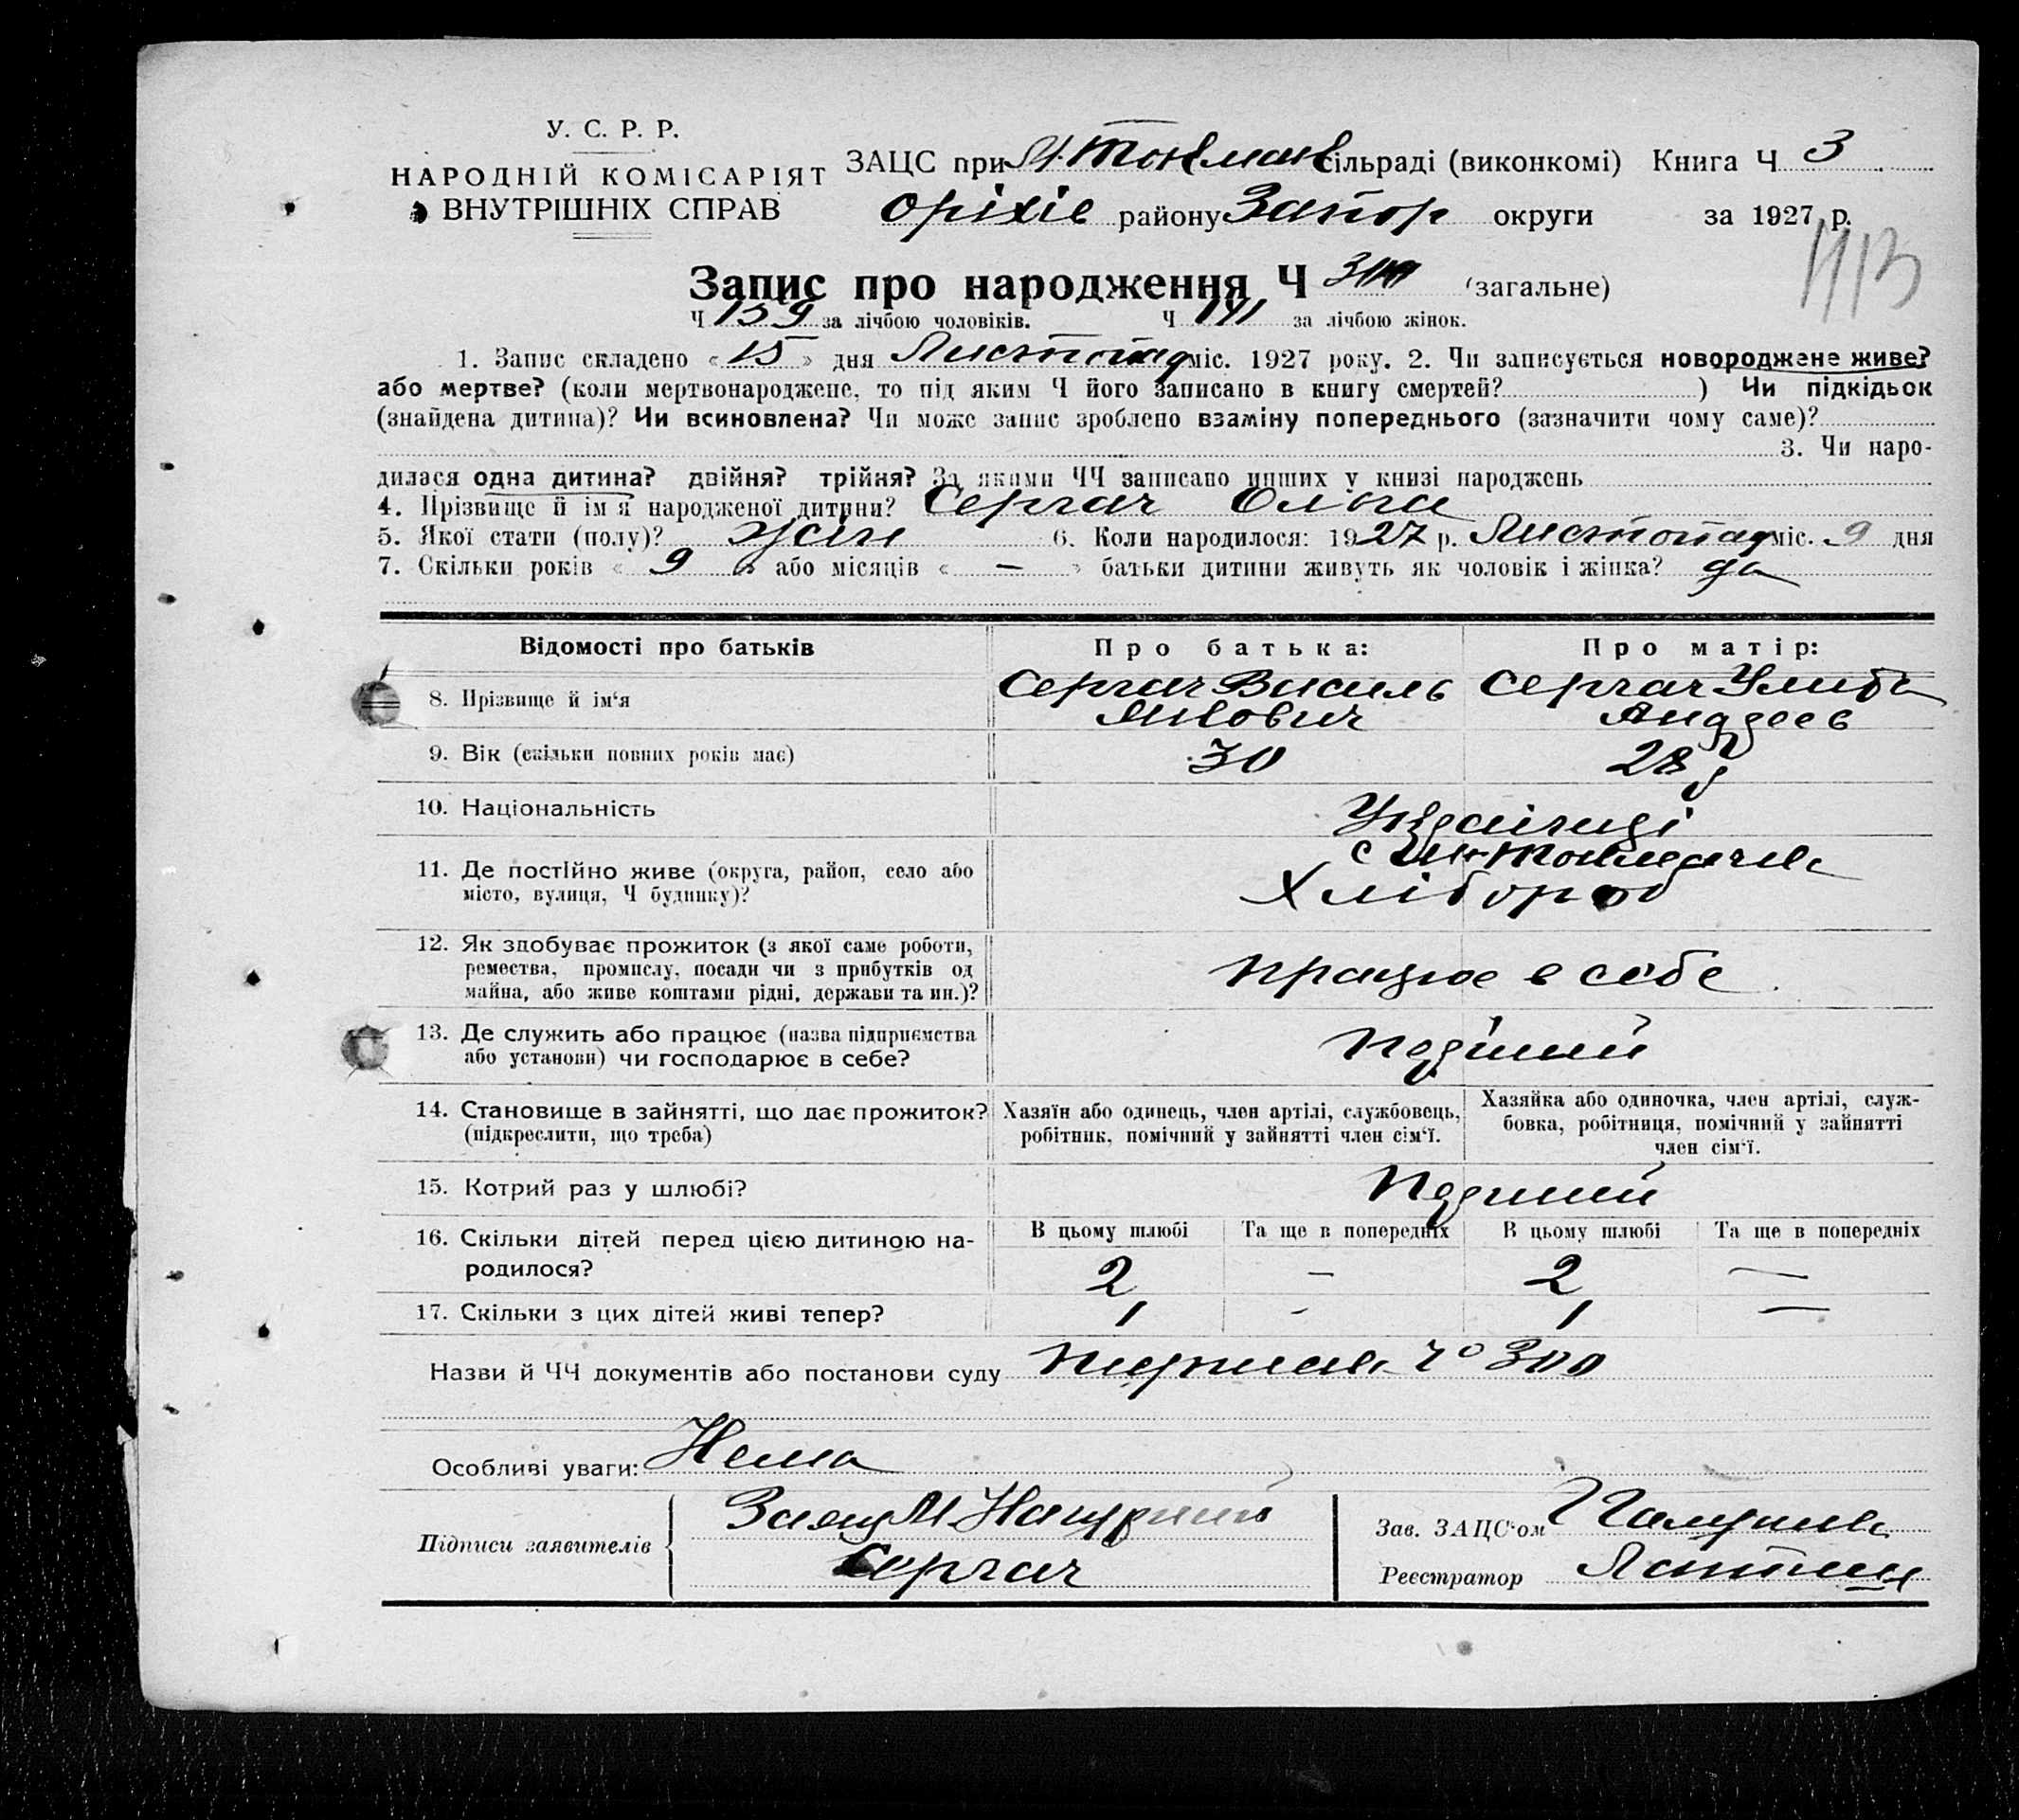 У. С. Р. Р.
НАРОДНІЙ КОМІСАРІЯТ
ВНУТРІШНІХ СПРАВ
ЗАЦС при М. Токмац сільраді (виконкомі) Книга Ч 3
Оріхів району Запор округи за 1927 р.
Запис про народження Ч 300 (загальне)
Ч 159 за лічбою чоловіків. Ч 141 за лічбою жінок.
1. Запис складено « 15 » дня Листопад міс. 1927 року. 2. Чи записується новороджене живе?
або мертве? (коли мертвонароджене, то під яким Ч його записано в книгу смертей? ) Чи підкідьок
(знайдена дитина)? Чи всиновлена? Чи може запис зроблено взаміну попереднього (зазначити чому саме)?
3. Чи наро-
дилася одна дитина? двійня? трійня? За якими ЧЧ записано инших у книзі народжень
4. Прізвище й ім'я народженої дитини? Сергач Ольга
5. Якої стати (полу)? жін 6. Коли народилося: 1927 р. Листопад міс. 9 дня
7. Скільки років « 9 » або місяців « — » батьки дитини живуть як чоловік і жінка? да
Відомості про батьків Про батька: Про матір:
8. Прізвище й ім'я Сергач Василь Сергач Улита
Андреев
9. Вік (скільки повних років має) 30 28
10. Національність Українці
11. Де постійно живе (округа, район, село або
місто, вулиця, Ч будинку)?
Хлібороб
12. Як здобуває прожиток (з якої саме роботи,
ремества, промислу, посади чи з прибутків од
майна, або живе коштами рідні, держави та ин.)?
працює в себе
13. Де служить або працює (назва підприємства
або установи) чи господарює в себе?
Перший
14. Становище в зайнятті, що дає прожиток?
(підкреслити, що треба)
Хазяїн або одинець, член артілі, службовець,
робітник, помічний у зайнятті член сім'ї.
Хазяйка або одиночка, член артілі, служ-
бовка, робітниця, помічний у зайнятті
член сім'ї.
15. Котрий раз у шлюбі? Перший
16. Скільки дітей перед цією дитиною на-
родилося?
В цьому шлюбі Та ще в попередніх В цьому шлюбі Та ще в попередніх
2 — 2 —
17. Скільки з цих дітей живі тепер? 1 - 1 —
Назви й ЧЧ документів або постанови суду 300
Особливі уваги: Нема
Підписи заявителів
Сергач
Зав. ЗАЦС'ом
Реєстратор